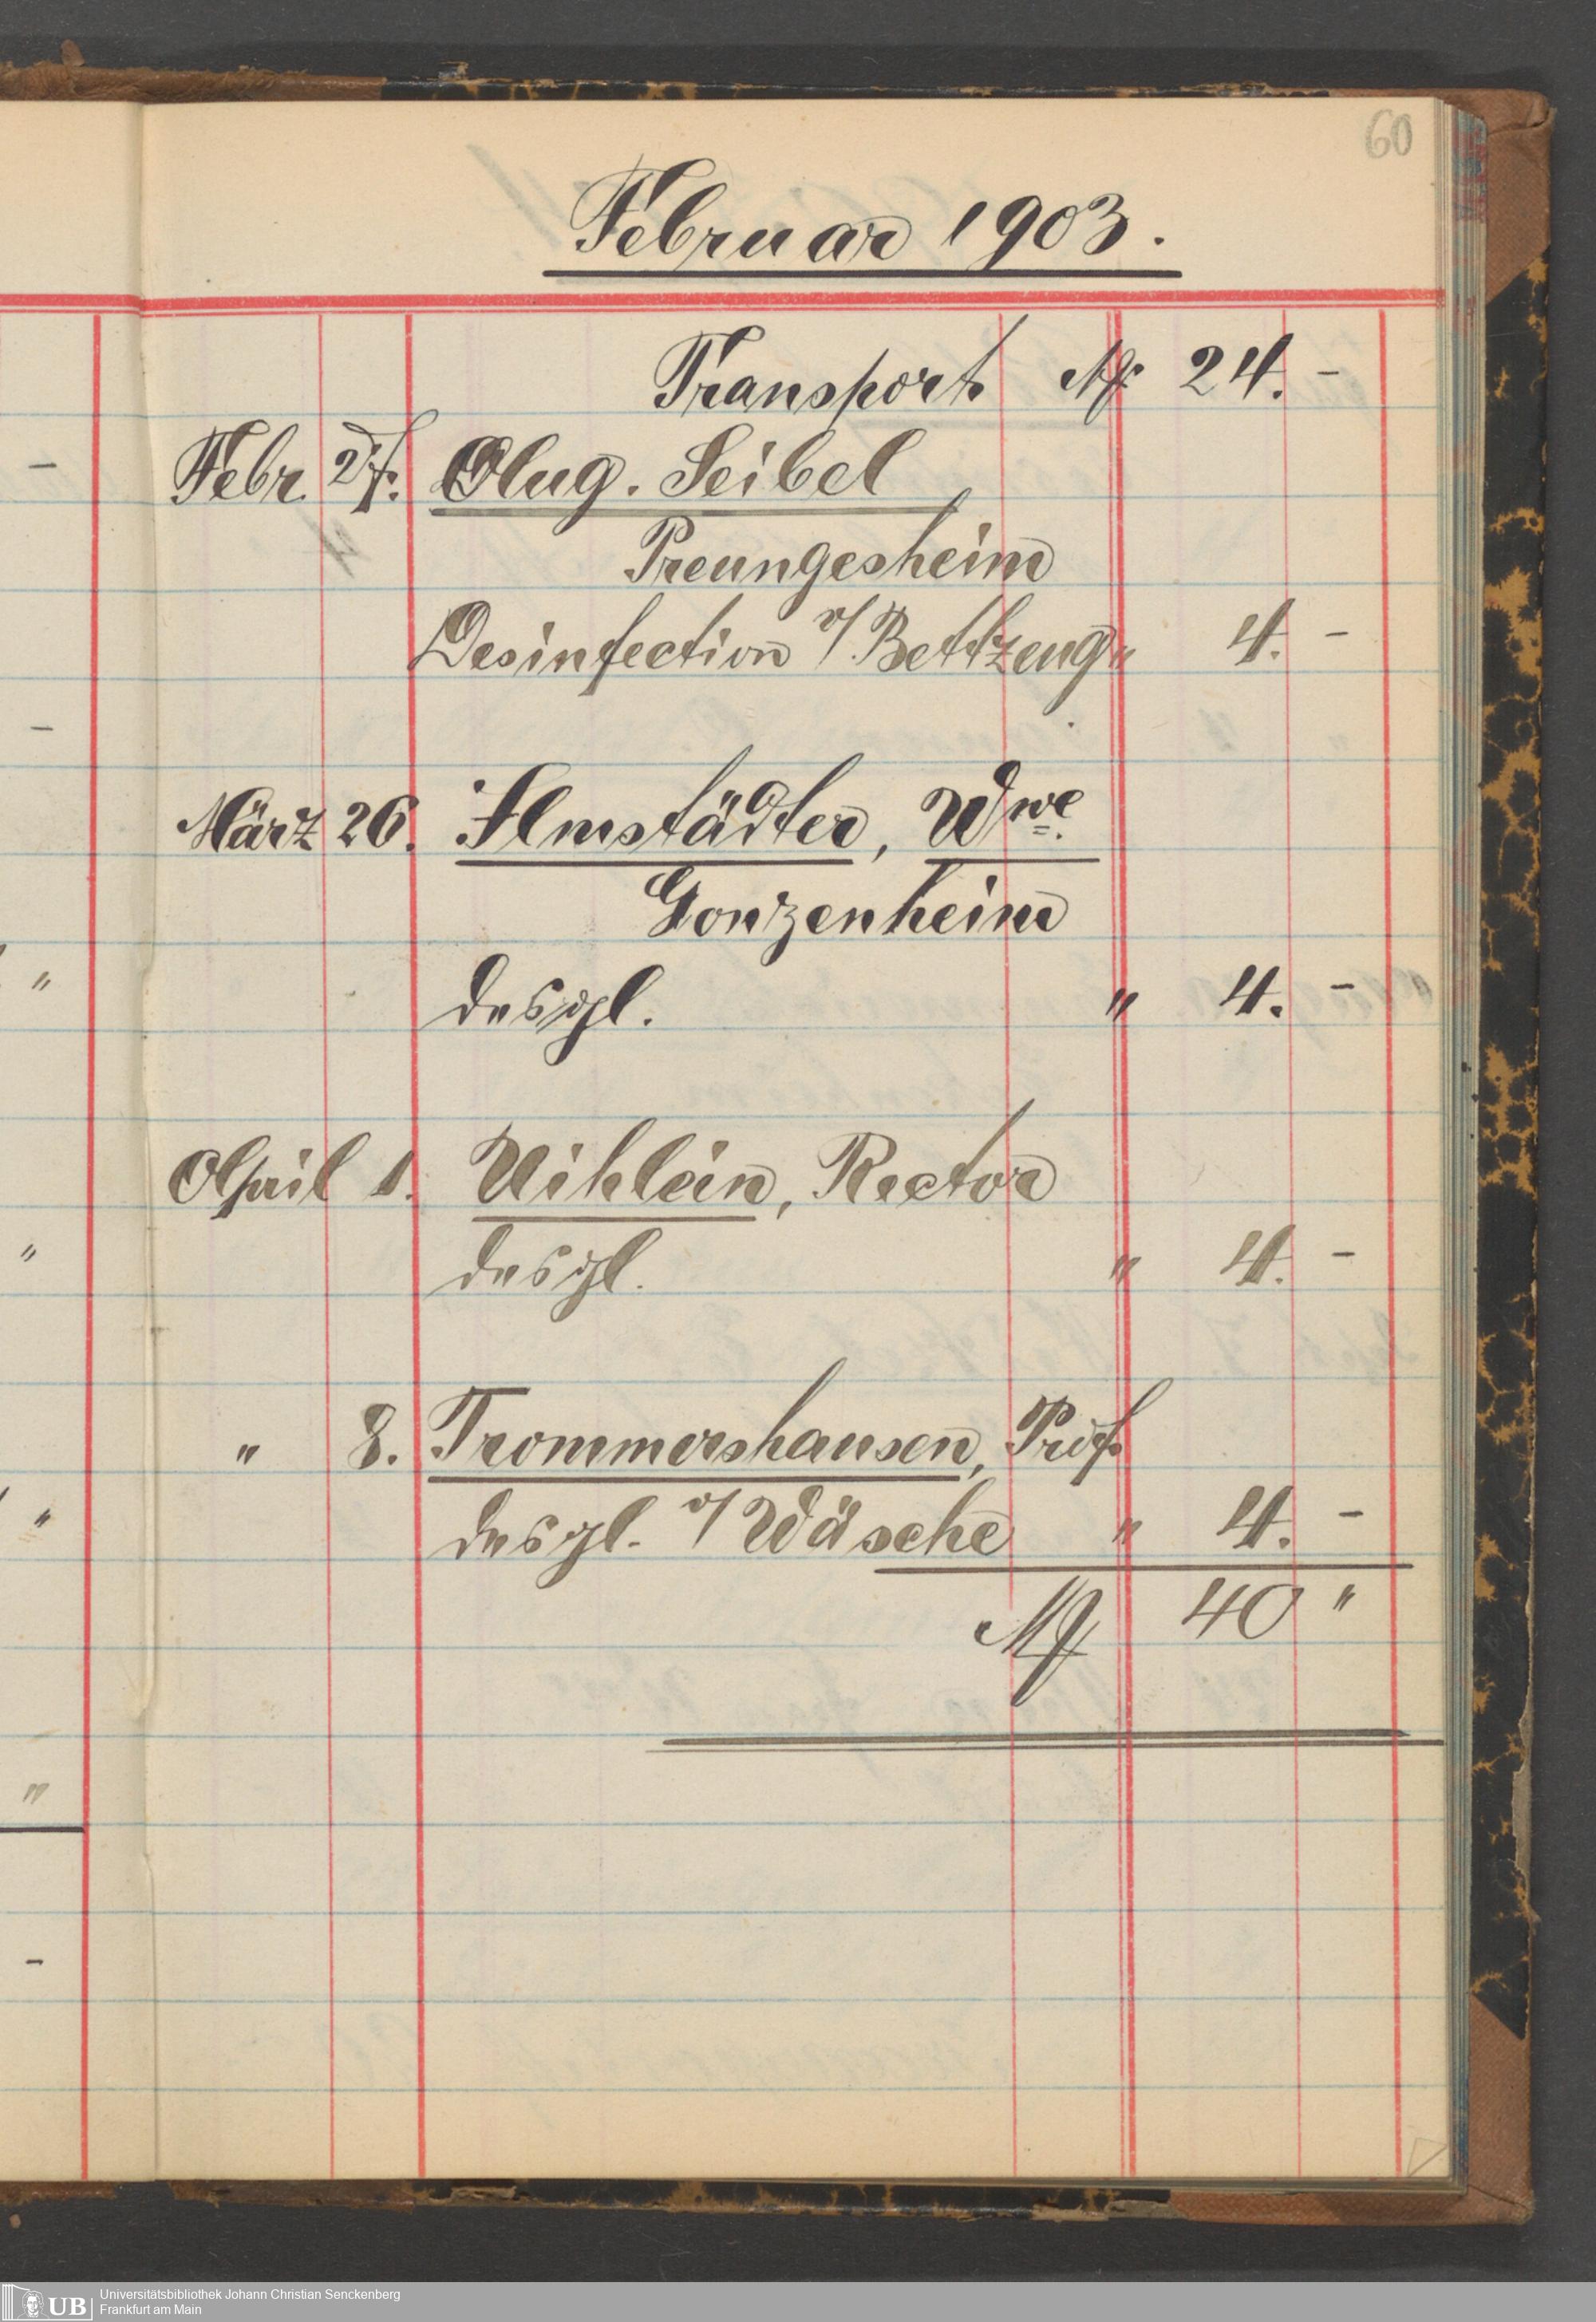 60
Februar 1903.
Transport M 24. -
Febr. 27. Aug. Seibel
Preungesheim
Desinfection v/ Bettzeug " 4. -
März 26. Ilmstädter, Wwe.
Gonzenheim
desgl. " 4. -
April 1. Uihlein, Rector
desgl. " 4. -
" 8. Trommershausen, Prof.
desgl. v/ Wäsche " 4. -
M 40 "
UB
Universitätsbibliothek Johann Christian Senckenberg
Frankfurt am Main